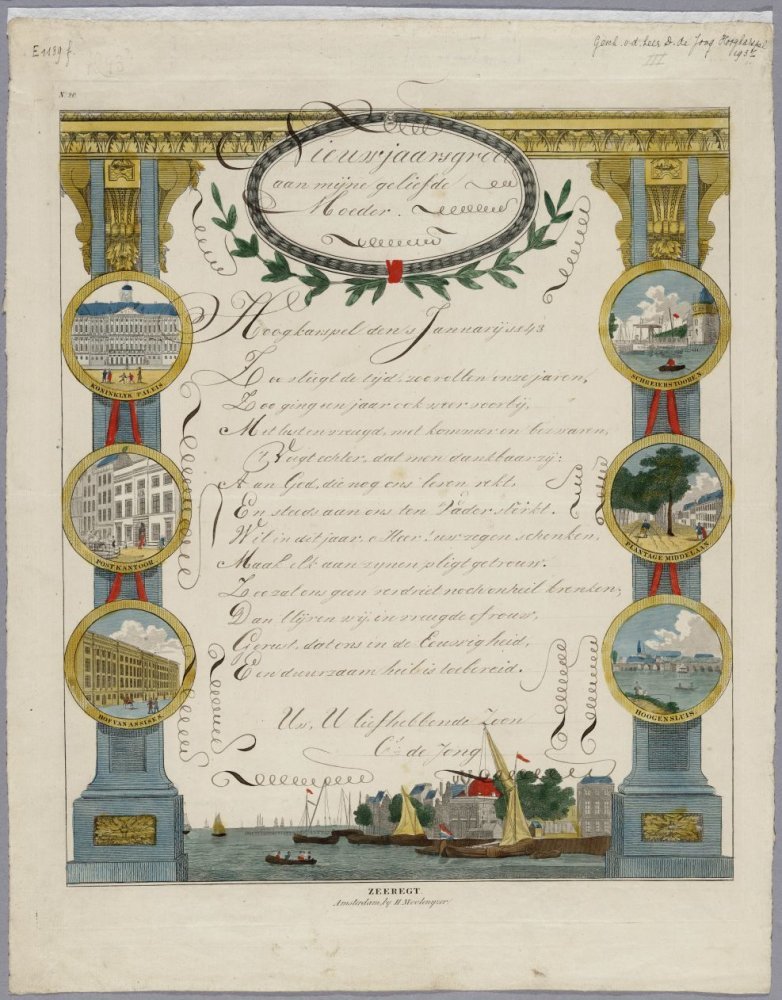 E 1139 f.
Gesch. v.d. heer D. de Jong Hoogkarspel
1937
III
N. 20.
Nieuwjaarsgroet
aan mijne geliefde
Moeder.
Hoogkarspel den 1 Januarij 1843
KONINKLYK PALEIS
SCHREIERSTOOREN
POSTKANTOOR
PLANTAGE MIDDELAAN
HOF VAN ASSISES
HOOGENSLUIS
Zoo vliegt de tijd, zoo rollen onze jaren,
Zoo ging een jaar ook weer voorbij,
Met lust en vreugd, met kommer en bezwaren,
't Voegt echter, dat men dankbaar zij:
Aan God, die nog ons leven rekt.
En steeds aan ons ten Vader strekt.
Wil in dit jaar, o Heer! uw zegen schenken,
Maak elk aan zijnen pligt getrouw.
Zoo zal ons geen verdriet noch onheil krenken;
Dan blijven wij in vreugde of rouw,
Gerust, dat ons in de Eeuwigheid,
Een duurzaam heil is toebereid.
Uw, U liefhebbende Zoon
Cs. de Jong
ZEEREGT.
Amsterdam, by H. Moolenyzer